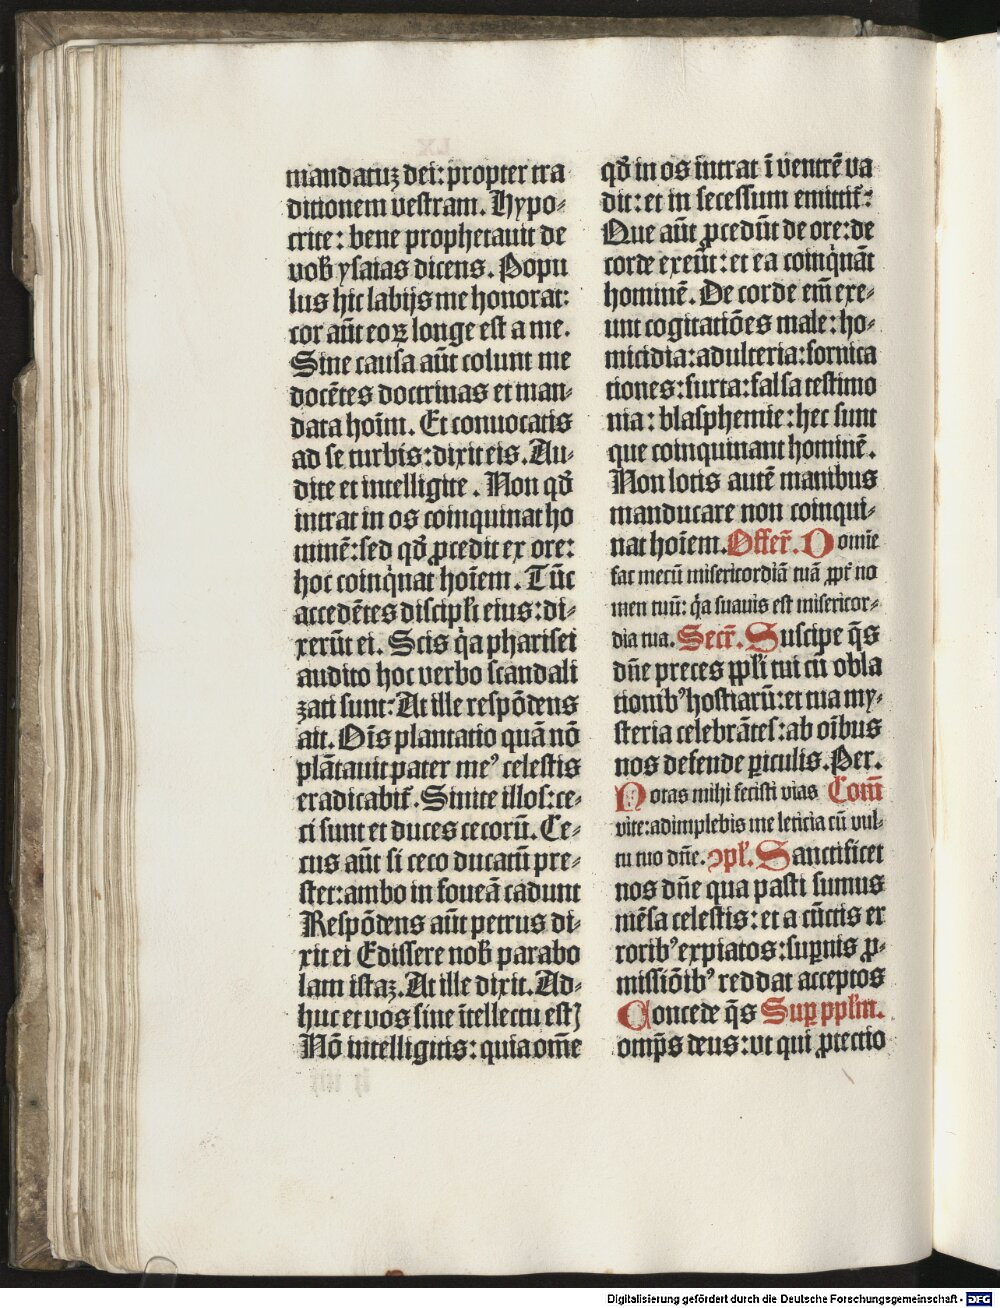 mandatuꝫ dei: propter tra
ditionem vestram. Hypo⸗
crite: bene prophetauit de
vob̄ ysaias dicens. Popu
lus hic labijs me honorat:
cor aūt eoꝝ longe est a me.
Sine causa aūt colunt me
docētes doctrinas et man⸗
data hoīm. Et conuocatis
ad se turbis: dixit eis. Au⸗
dite et intelligite. Non qđ
intrat in os coinquinat ho
minē: sed qđ ꝓcedit ex ore:
hoc coinq̇nat hoīem. Tūc
accedētes discipl̄i eius: di⸗
xerūt ei. Scis q̇a pharisei
audito hoc verbo scandali
zati sunt: At ille respōdens
ait. Oīs plantatio quā nō
plātauit pater meꝰ celestis
eradicabit̄. Sinite illos: ce⸗
ci sunt et duces cecorū. Ce⸗
cus aūt si ceco ducatū pre⸗
stet: ambo in foueā cadunt
Respōdens aūt petrus di⸗
xit ei Edissere nob̄ parabo
lam istaꝫ. At ille dixit. Ad⸗
huc et vos sine ītellectu est]
Nō intelligitis: quia om̄e
qđ in os intrat ī ventrē va
dit: et in secessum emittit̄:
Que aūt ꝓcedūt de ore: de
corde exeūt: et ea coinq̇nāt
hominē. De corde em̄ exe⸗
unt cogitatiōes male: ho⸗
micidia: adulteria: fornica
tiones: furta: falsa testimo
nia: blasphemie: hec sunt
que coinquinant hominē.
Non lotis autē manibus
manducare non coinqui⸗
nat hoīem. Offer̄. Domīe
fac mecū misericordiā tuā ꝓpt̄ no
men tuū: q̇a suauis est misericor⸗
dia tua. Secr̄. Suscipe q̄s
dn̄e preces ppl̄i tui cū obla
tionibꝰ hostiarū: et tua my⸗
steria celebrātes: ab oībus
nos defende ꝑiculis. Per.
Notas mihi fecisti vias Com̄
vite: adimplebis me leticia cū vul⸗
tu tuo dn̄e. ꝯpl̄. Sanctificet
nos dn̄e qua pasti sumus
mēsa celestis: et a cūctis er
roribꝰ expiatos: suꝑnis ꝓ⸗
missiōibꝰ reddat acceptos
Concede q̄s Suꝑ ppl̄m.
omp̄s deus: vt qui ꝓtectio
Digitalisierung gefördert durch die Deutsche Forschungsgemeinschaft - DFG